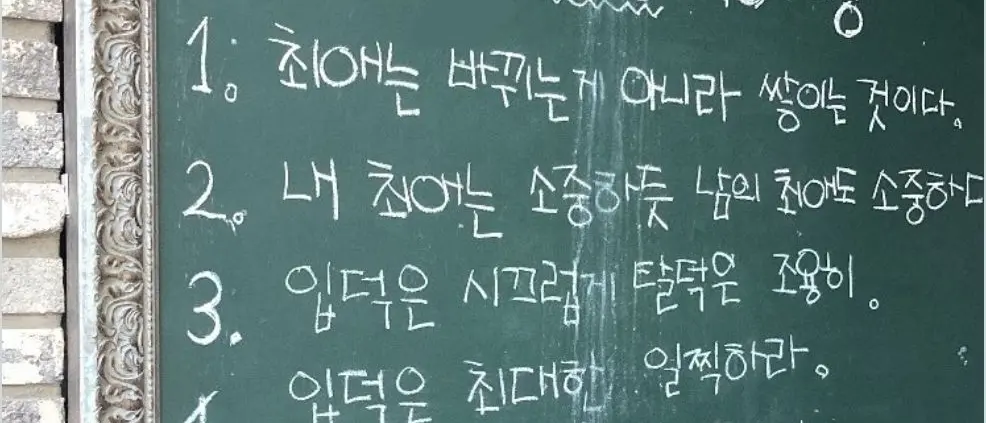 1. 최애는 바뀌는게 아니라 쌓이는 것이다.
2. 내 최애는 소중하듯 남의 최애도 소중하다
3. 입덕은 시끄럽게 탈덕은 조용히.
입덕은 최대한 일찍하라.